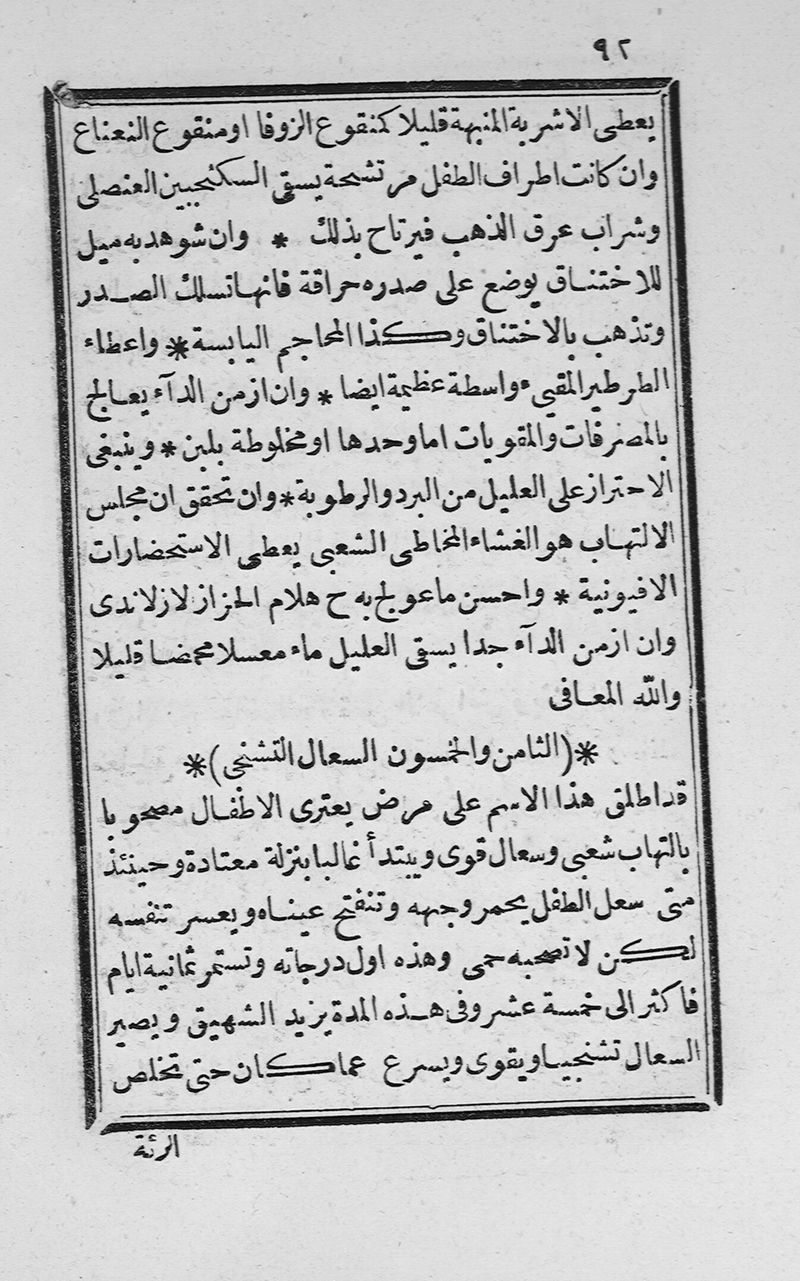 ٩٢
يعطى الاشربة المنبهة قليلا كمنقوع الزوفا او منقوع النعناع
وان كانت اطراف الطفل مرتشحة يسقى السكنجبين العنصلى
وشراب عرق الذهب فيرتاح بذلك * وان شوهد به ميل
للاختناق يوضع على صدره حراقة فانها تسلك الصدر
وتذهب بالاختناق وكذا المحاجم اليابسة * واعطاء
الطرطير المقيء واسطة عظيمة ايضا * وان ازمن الدآء يعالج
بالمصرفات والمقويات اما وحدها او مخلوطة بلبن * وينبغى
الاحتراز على العليل من البرد والرطوبة * وان تحقق ان مجلس
الالتهاب هو الغشاء المخاطى الشعبى يعطى الاستحضارات
الافيونية * واحسن ما عولج به ح هلام الحزاز لازلاندى
وان ازمن الدآء جدا يسقى العليل ماء معسلا محمضا قليلا
والله المعافى
*(الثامن والخمسون السعال التشنجى)*
قد اطلق هذا الاسم على مرض يعترى الاطفال مصحوبا
بالتهاب شعبى وسعال قوى ويبتدأ غالبا بنزلة معتادة وحينئذ
متى سعل الطفل يحمر وجهه وتنفتح عيناه ويعسر تنفسه
لكن لا تصحبه حمى وهذه اول درجاته وتستمر ثمانية ايام
فاكثر الى خمسة عشر وفى هذه المدة يزيد الشهيق ويصير
السعال تشنجيا ويقوى ويسرع عما كان حتى تخلص
الرئة